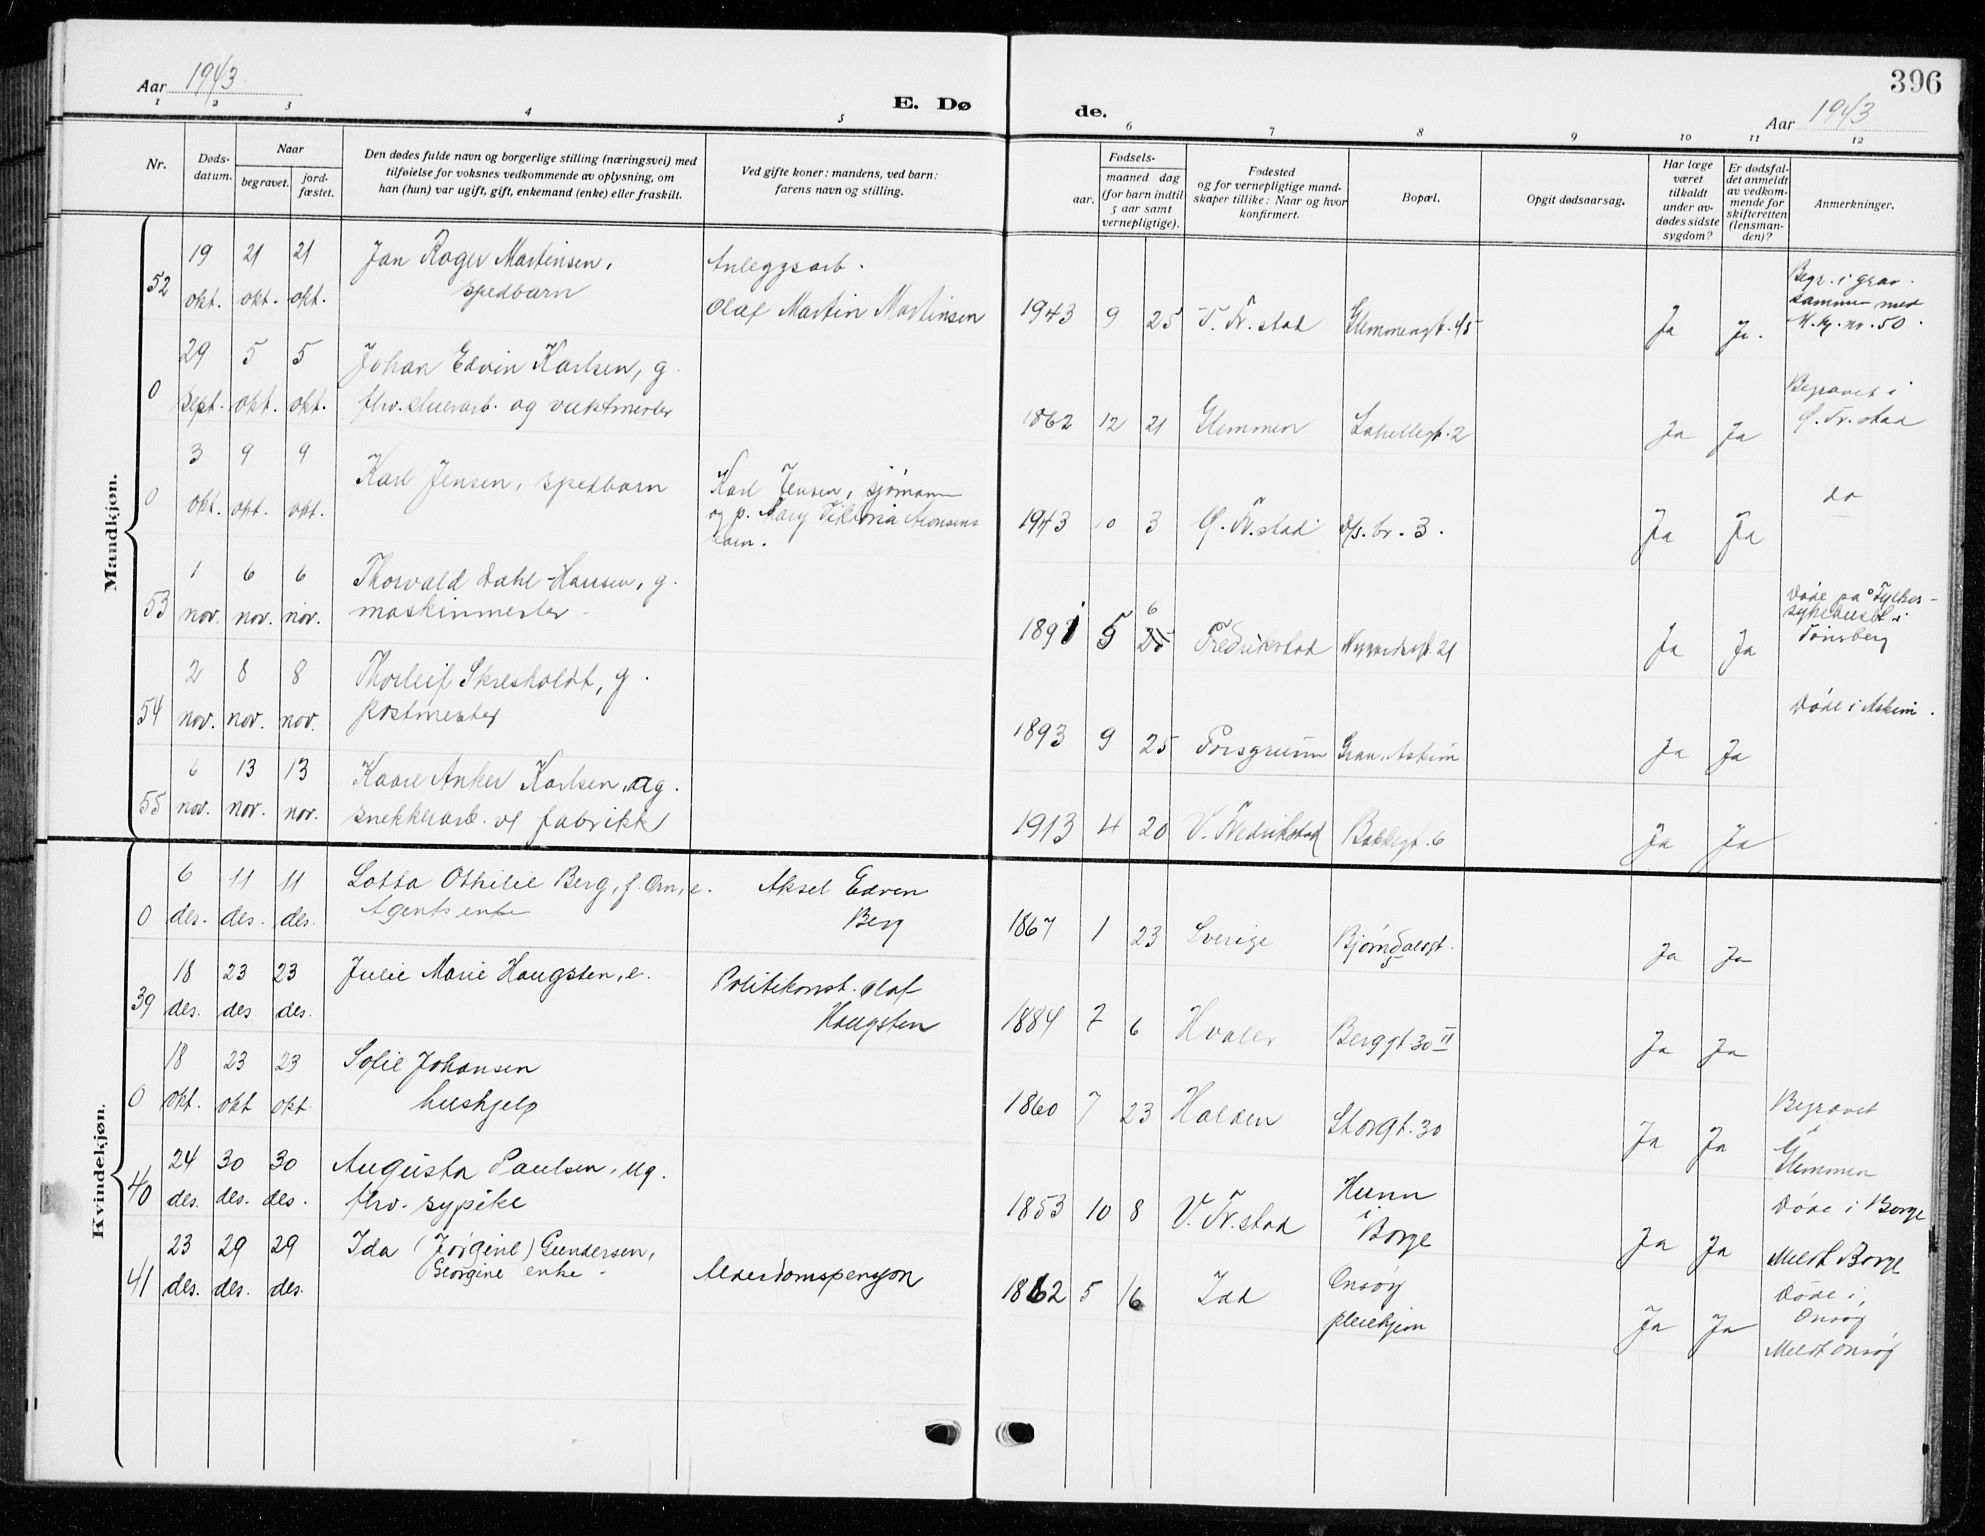 396
Aar 1943
E. Dø
de.
Aar 1943
1 2 3 4 5 6 7 8 9 10 11 12
Nr.
Døds-
datum.
Naar
begravet.
jord-
fæstet.
Den dødes fulde navn og borgerlige stilling (næringsvei) med
tilføielse for voksnes vedkommende av oplysning, om
han (hun) var ugift, gift, enkemand (enke) eller fraskilt.
Ved gifte koner: mandens, ved barn:
farens navn og stilling.
Fødsels-
aar.
maaned dag
(for barn indtil
5 aar samt
vernepligtige).
Fødested
og for vernepligtige mand-
skaper tillike: Naar og hvor
konfirmert.
Bopæl.
Opgit dødsaarsag.
Har læge
været
tilkaldt
under av-
dødes sidste
sygdom?
Er dødsfal-
det anmeldt
av vedkom-
mende for
skifteretten
(lensman-
den)?
Anmerkninger.
Mandkjøn.
52
19 21 21
okt. okt. okt.
Jan Roger Martinsen,
spedbarn
Anleggsarb.
Olaf Martin Martinsen
1943 9 25 V. Fr.stad Glemmengt. 45 Ja Ja.
Begr. i grav
sammen med
M.kj. nr. 50.
0
29 5 5
sept. okt. okt.
Johan Edvin Karlsen, g.
fhv. stuerarb. og vaktmester
1862 12 21 Glemmen Lahellegt. 2 Ja Ja
Begravet i
Ø. Fr.stad
0
3 9 9
okt. okt. okt.
Karl Jensen, spedbarn
Karl Jensen, sjømann
og p. Mary Viktoria Aronsens
barn.
1943 10 3 Ø. Fr.stad 3. Ja Ja
do
53
1 6 6
nov. nov. nov.
Thorvald Dahl-Hansen, g.
maskinmester
1891 5 6 Fredrikstad 21 Ja Ja
Døde på Fylkes-
sykehuset i
Tønsberg
54
2 8 8
nov. nov. nov.
Thorleif Skresholdt, g.
postmester
1893 9 25 Porsgrunn Grav. Askim Ja Ja
Døde i Askim.
55
6 13 13
nov. nov. nov.
Kaare Anker Karlsen, ug.
snekkerarb. v/ fabrikk
1913 4 20 V. Fredrikstad Bakkegt. 6 Ja Ja
Kvindekjøn.
0
6 11 11
des. des. des.
Lotta Othilie Berg, f. Orn, e.
Agents enke
Aksel Edven
Berg
1867 1 23 Sverige Bjørndalsgt.
5 Ja Ja
39
18 23 23
des. des des.
Julie Marie Haugsten, e.
Politikonst. Olaf
Haugsten
1884 7 6 Hvaler Berggt 30 II Ja Ja
0
18 23 23
okt. okt okt
Sofie Johansen
hushjelp
1860 7 23 Halden Storgt. 30 Ja Ja
Begravet
i
Glemmen
40
24 30 30
des. des. des.
Augusta Paulsen, ug.
fhv. sypike
1853 10 8 V. Fr.stad Hunn
i
Borge Ja Ja
Døde i Borge
Meldt Borge
41
23 29 29
des. des. des.
Ida (Jørgine) Gundersen,
Georgine enke
Alderdomspensjon
1862 5 16 Idd Onsøy
pleiehjem Ja Ja
Døde i,
Onsøy
Meldt Onsøy